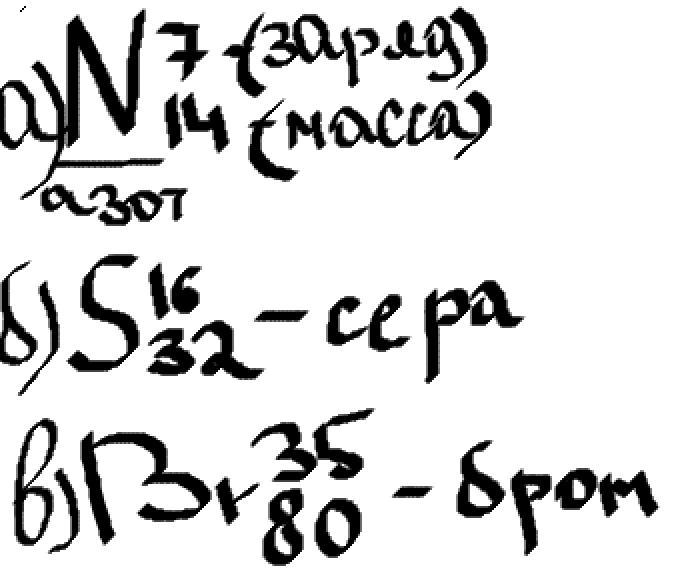 а) N 7 - (заряд)
14 (масса)
азот
б) S 16
32 - сера
в) Br 35
80 - бром